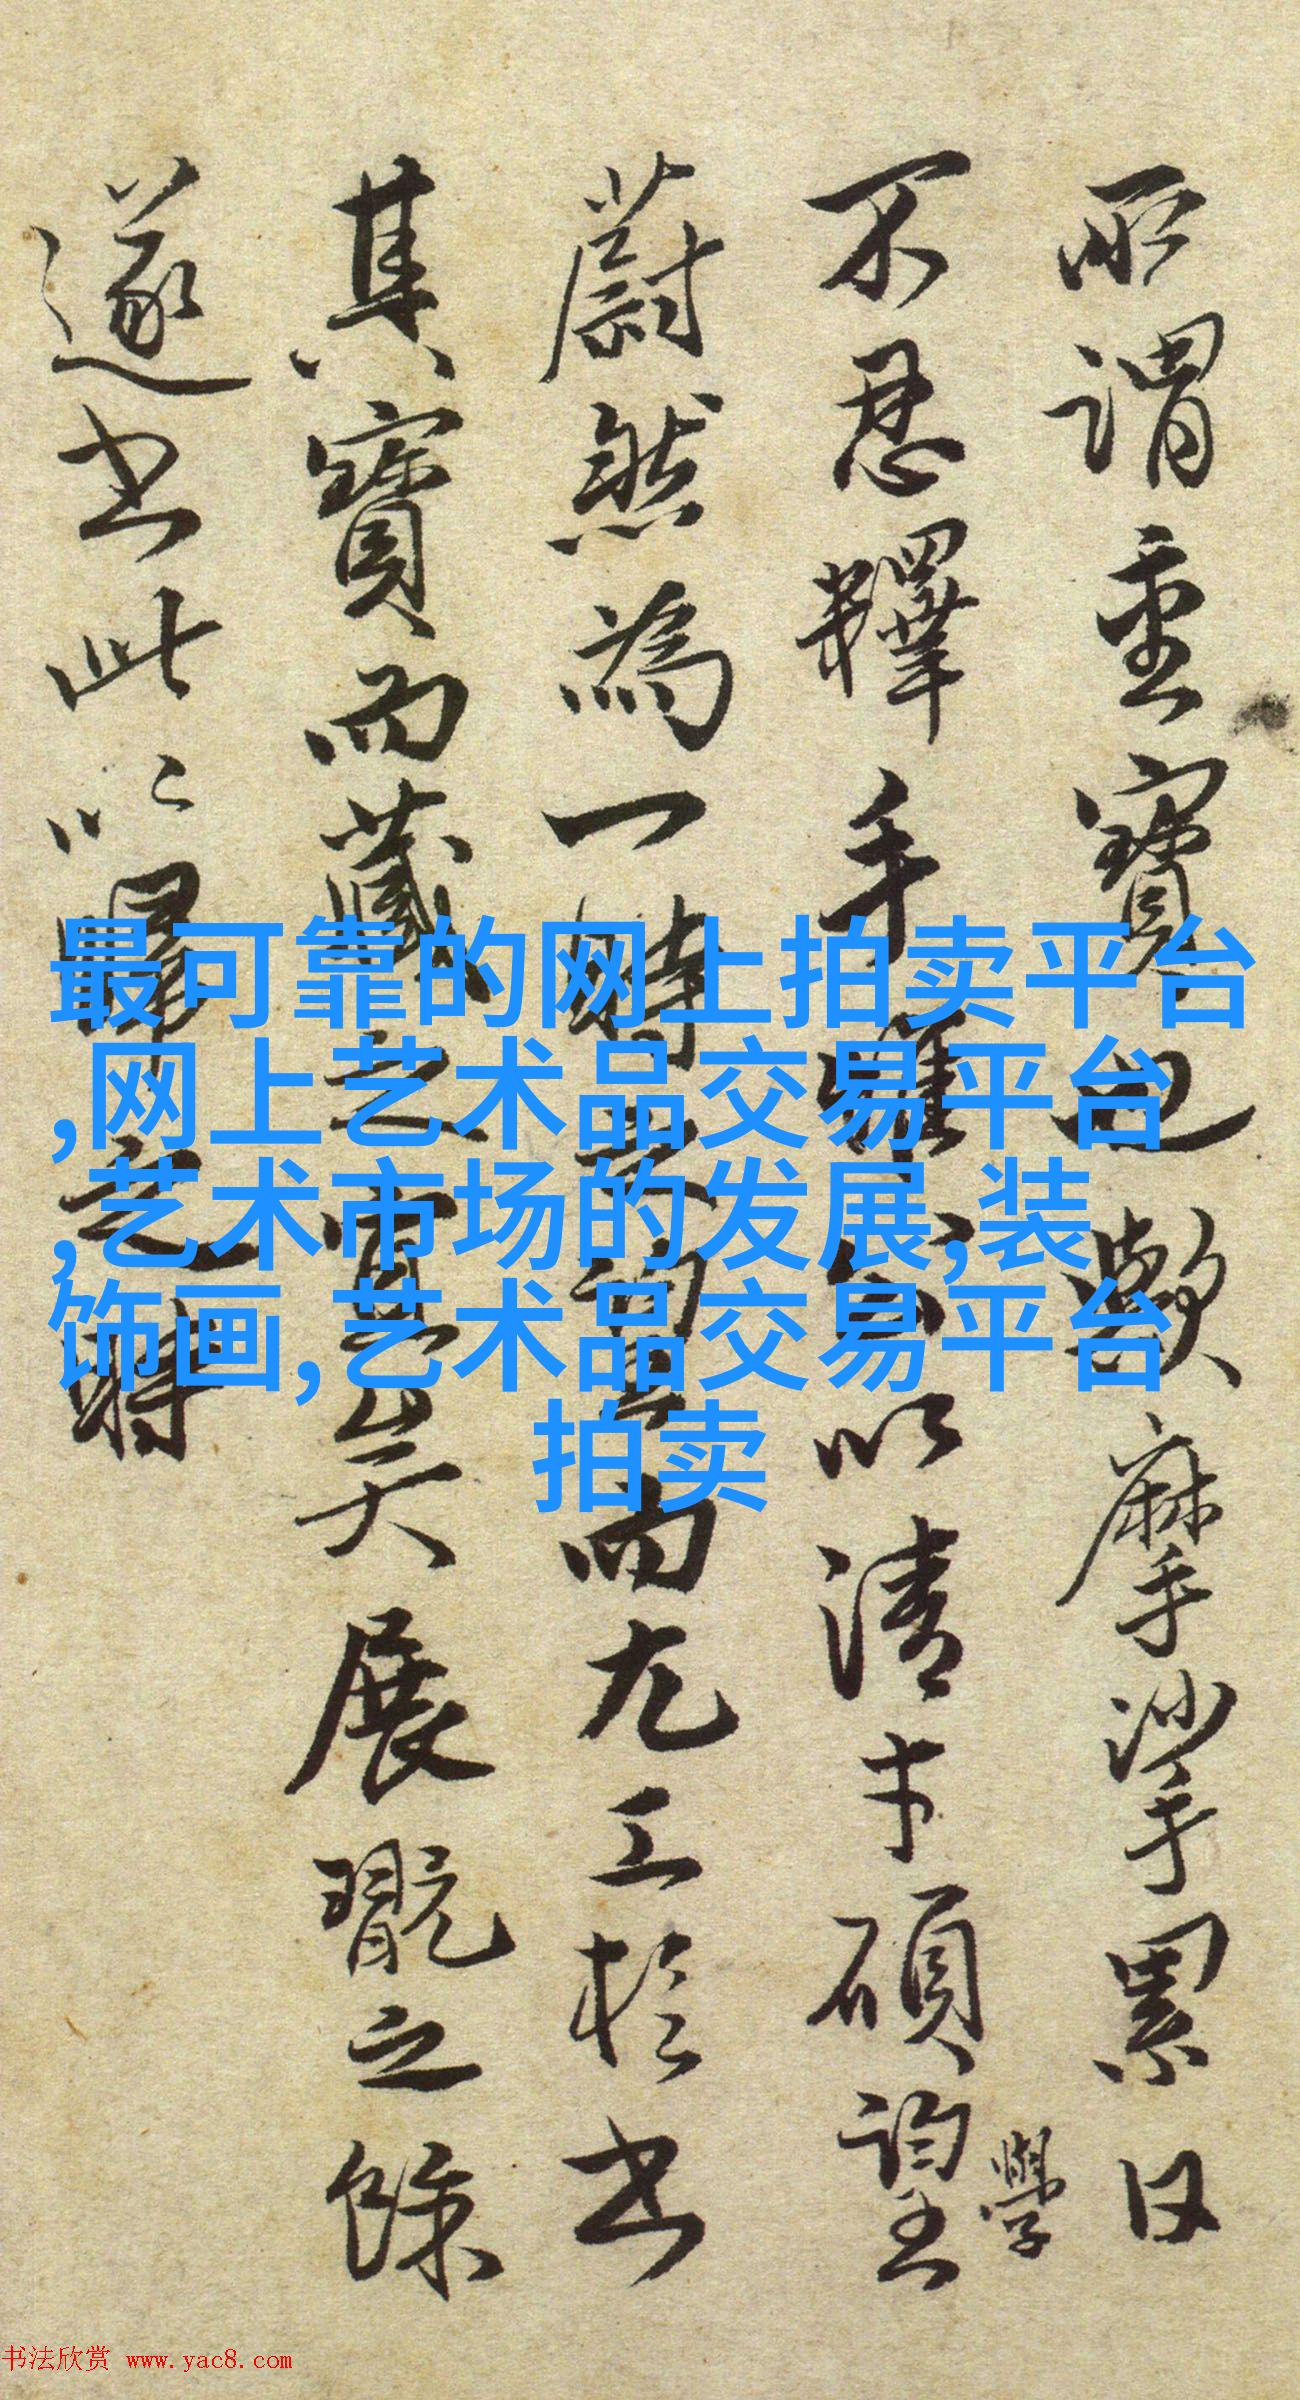 所謂重寶也數摩挲累日
不忍釋手以清才碩學望
蔚然為一時而尤工於書
其寶而藏之宜矣展翫之餘
遂书此以歸之時
最可靠的网上拍卖平台
,网上艺术品交易平台
,艺术市场的发展,装
饰画,艺术品交易平台
拍卖
书法欣赏 www.yac8.com